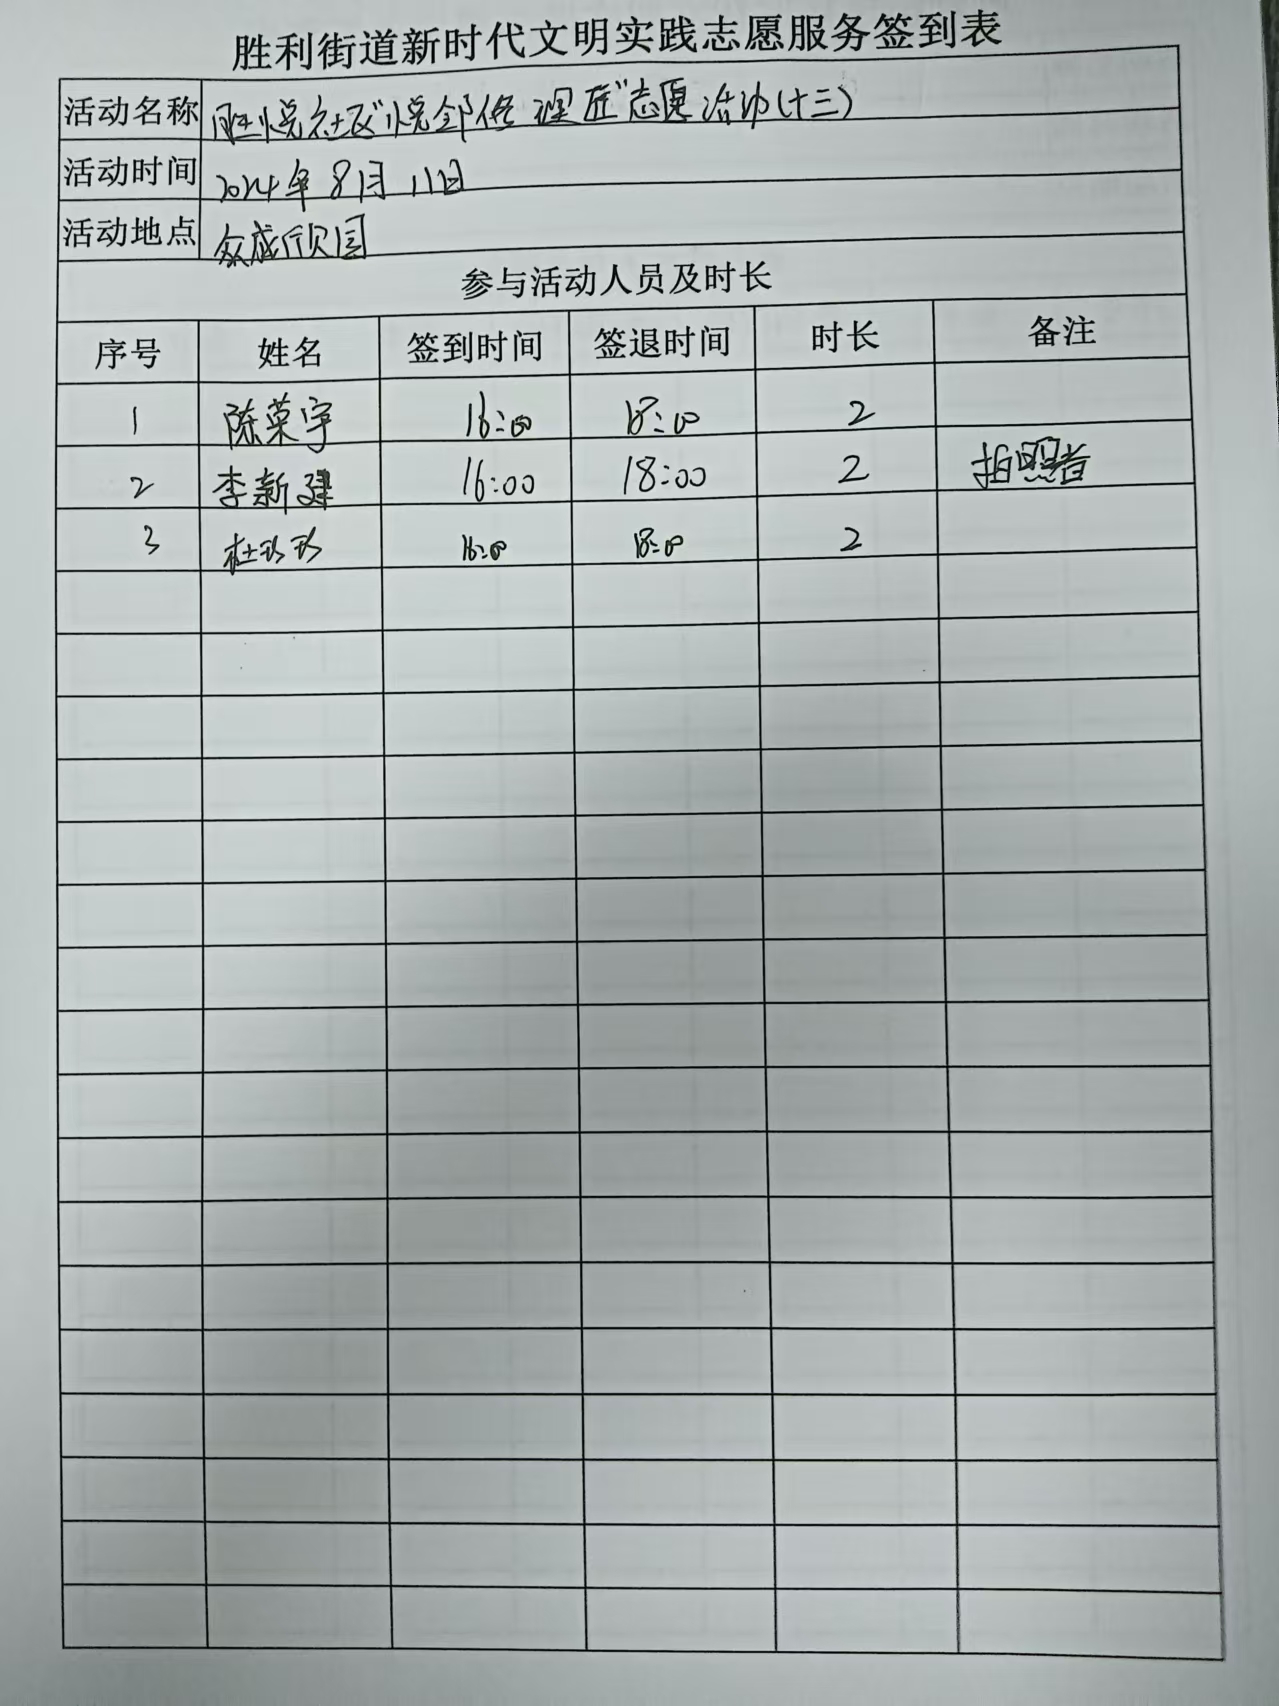 胜利街道新时代文明实践志愿服务签到表
活动名称 胜悦社区"悦邻修理匠"志愿活动(十三)
活动时间 2024年8月11日
活动地点 众成欣园
参与活动人员及时长
序号 姓名 签到时间 签退时间 时长 备注
1 陈荣宇 16:00 18:00 2
2 李新建 16:00 18:00 2 拍照者
3 杜珍珍 16:00 18:00 2